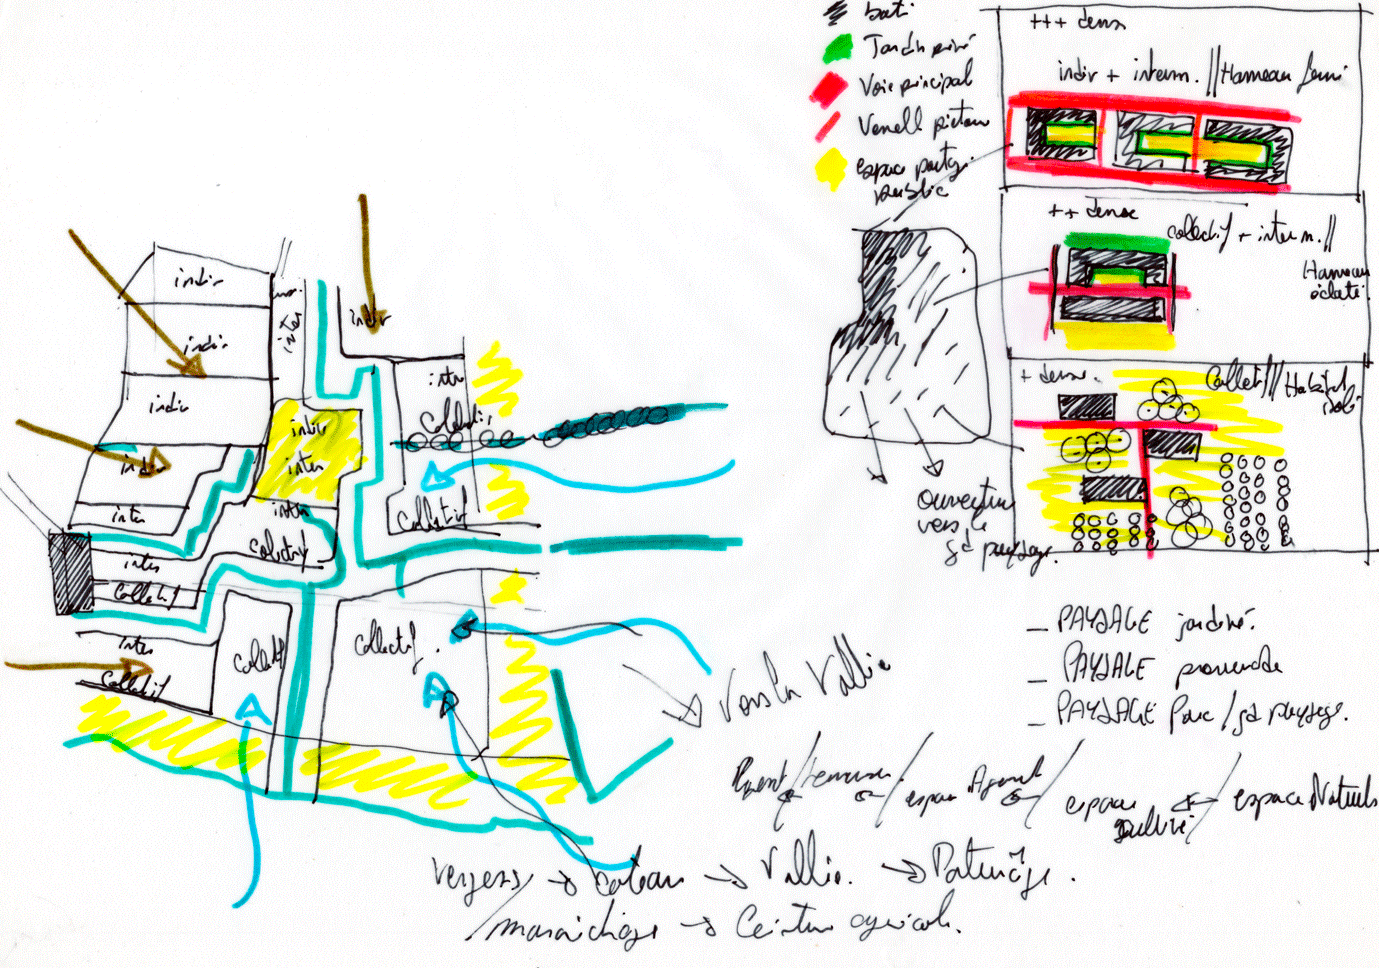 bati
Jardin privé
Voie principal
Venell piéton
espace partagé
public
+++ dense
indiv + interm. // Hameau
++ dense
collectif + interm. //
Hameau
éclaté
+ dense.
Collectif // Habitat
isolé
ouverture
vers le
gd paysage.
indiv
indiv
indiv
indiv
inter
inter
Collectif
inter
Collectif
inter
indiv
inter
inter
Collectif
Collectif
indiv
inter
Collectif
Collectif
Collectif.
Vers la Vallée
_ PAYSAGE jardiné.
_ PAYSAGE promenade
_ PAYSAGE Parc / gd paysage.
espace
espace
cultivé
espace Naturels
Vergers / → coteau → Vallée. → Paturage.
/ maraichage → Ceinture agricole.